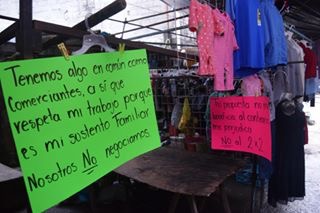 Tenemos algo en común como
Comerciantes, a sí que
respeta mi trabajo porque
es mi sustento Familiar
Nosotros No negociamos
Tu propuesta no me
beneficia al contrario
me perjudica
NO al 2x2